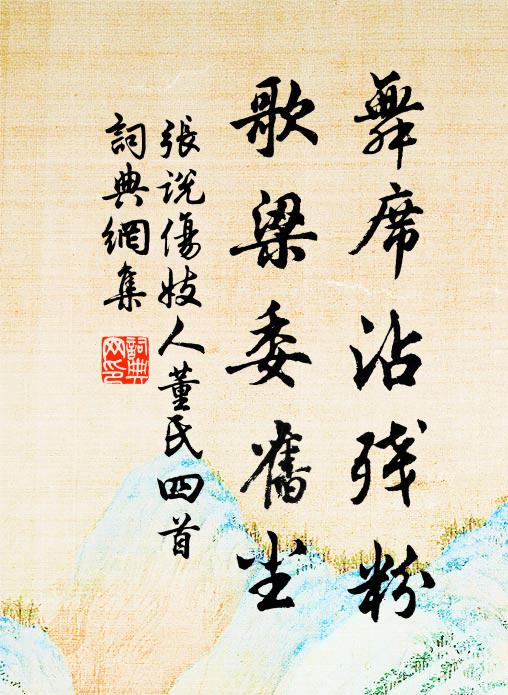 舞席沾残粉
歌梁委舊尘
張说傷妓人董氏四首
詞典網集
詞典
网印